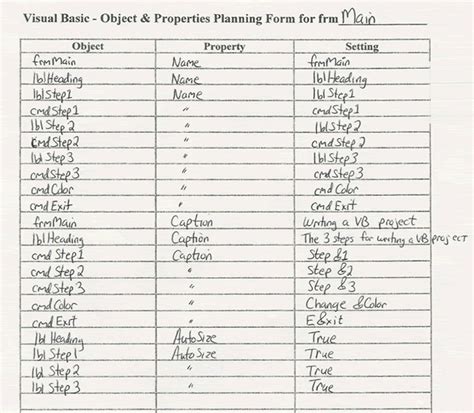 Visual Basic - Object & Properties Planning Form for frm Main
Object Property Setting
frmMain Name frmMain
lblHeading Name lblHeading
lblStep1 Name lblStep1
cmdStep1 " cmdStep1
lblStep2 " lblStep2
cmdStep2 " cmdStep2
lblStep3 " lblStep3
cmdStep3 " cmdStep3
cmdColor " cmdColor
cmdExit " cmdExit
frmMain Caption Writing a VB project
lblHeading Caption The 3 steps for writing a VB project
cmd Step1 Caption Step &1
cmd Step2 " Step &2
cmd Step 3 " Step &3
cmdColor " Change &Color
cmd Exit " E&xit
lbl Heading AutoSize True
lbl Step1 AutoSize True
lbl Step 2 " True
lbl Step 3 " True